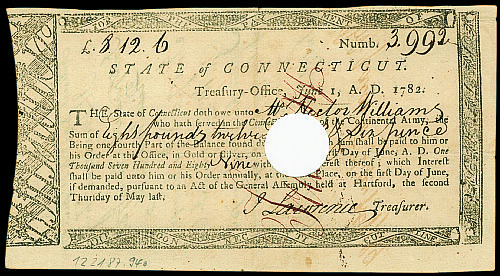 £.8.12.6 Numb. 3992
STATE OF CONNECTICUT.
Treasury-Office, June 1, A. D. 1782.
THE State of Connecticut doth owe unto Mr Hector Williams
who hath served in the Connecticut of the Continental Army, the
Sum of eight pounds twelve & Six pence
Being one fourth Part of the Balance found due sum shall be paid to him or
his Order at this Office, in Gold or Silver, on First Day of June, A. D. One
Thousand Seven Hundred and Eighty Nine Interest thereof; which Interest
shall be paid unto him or his Order annually, at the Place, on the first Day of June,
if demanded, pursuant to an Act of the General Assembly held at Hartford, the second
Thursday of May last,
J Lawrence Treasurer.
122187.940